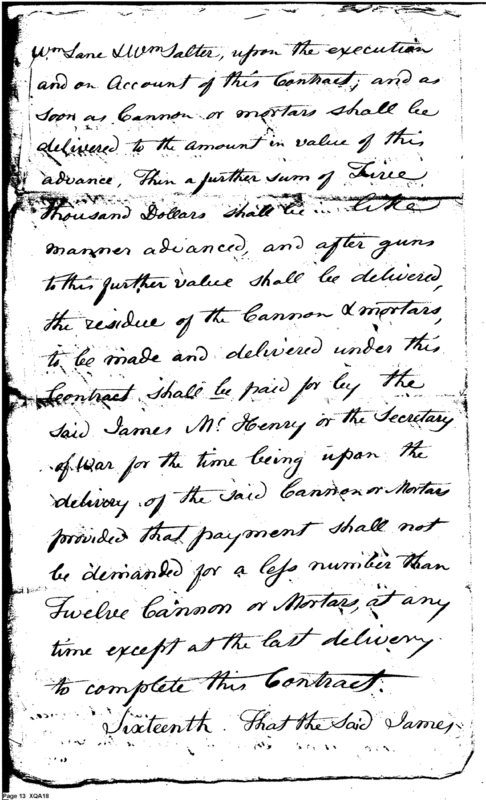 Wm Lane & Wm Salter, upon the execution
and on Account of this Contract; and as
soon as Cannon or mortars shall be
delivered to the amount in value of this
advance, Then a further sum of Three
thousand Dollars shall be in like
manner advanced, and after guns
to this further value shall be delivered,
the residue of the Cannon & mortars,
to be made and delivered under this
Contract shall be paid for by the
said James Mc Henry or the Secretary
of War for the time being upon the
delivery of the said Cannon or Mortars
provided that payment shall not
be demanded for a less number than
Twelve Cannon or Mortars, at any
time except at the last delivery
to complete this Contract.
Sixteenth. That the said James
Page 13 XQA18